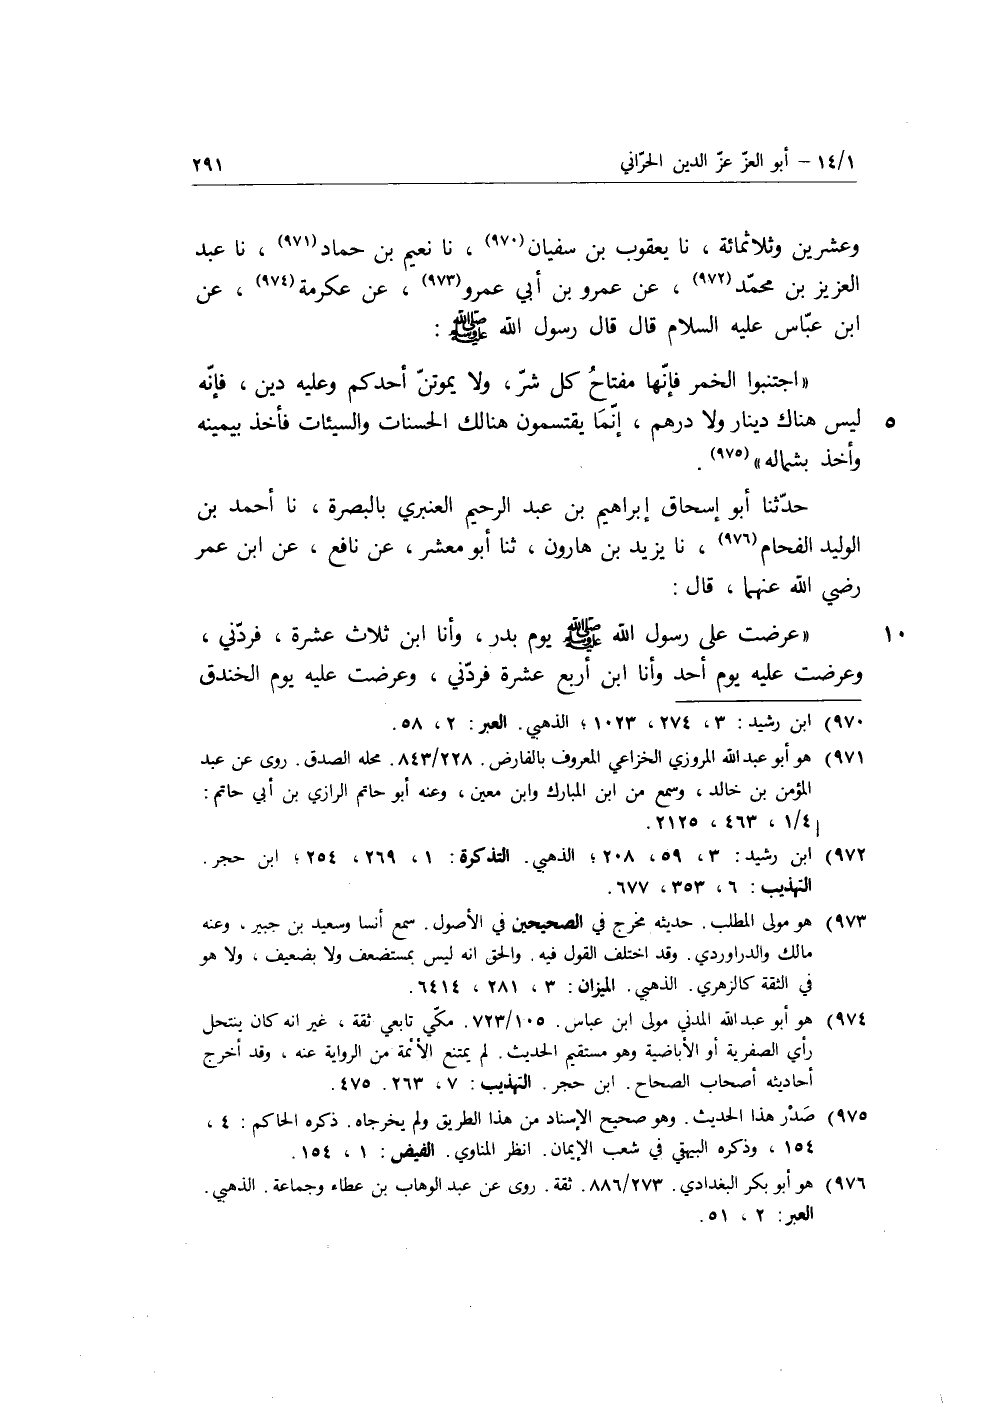 ١٤/١ – أبو العزّ عزّ الدين الحرّاني ٢٩١
وعشرين وثلاثمائة ، نا يعقوب بن سفيان(٩٧٠) ، نا نعيم بن حماد(٩٧١) ، نا عبد
العزيز بن محمّد(٩٧٢) ، عن عمرو بن أبي عمرو(٩٧٣) ، عن عكرمة(٩٧٤) ، عن
ابن عبّاس عليه السلام قال قال رسول الله ﷺ :
«اجتنبوا الخمر فإنّها مفتاحُ كل شرّ ، ولا يموتنّ أحدكم وعليه دين ، فإنّه
٥ ليس هناك دينار ولا درهم ، إنّمَا يقتسمون هنالك الحسنات والسيئات فأخذ بيمينه
وأخذ بشماله»(٩٧٥) .
حدّثنا أبو إسحاق إبراهيم بن عبد الرحيم العنبري بالبصرة ، نا أحمد بن
الوليد الفحام(٩٧٦) ، نا يزيد بن هارون ، ثنا أبو معشر ، عن نافع ، عن ابن عمر
رضي الله عنهما ، قال :
١٠ «عرضت على رسول الله ﷺ يوم بدر ، وأنا ابن ثلاث عشرة ، فردّني ،
وعرضت عليه يوم أحد وأنا ابن أربع عشرة فردّني ، وعرضت عليه يوم الخندق
٩٧٠) ابن رشيد : ٣ ، ٢٧٤ ، ١٠٢٣ ؛ الذهبي. العبر : ٢ ، ٥٨.
٩٧١) هو أبو عبد الله المروزي الخزاعي المعروف بالفارض. ٨٤٣/٢٢٨. محله الصدق. روى عن عبد
المؤمن بن خالد ، وسمع من ابن المبارك وابن معين ، وعنه أبو حاتم الرازي بن أبي حاتم :
١/٤ ، ٤٦٣ ، ٢١٢٥.
٩٧٢) ابن رشيد : ٣ ، ٥٩ ، ٢٠٨ ؛ الذهبي. التذكرة : ١ ، ٢٦٩ ، ٢٥٤ ؛ ابن حجر.
التهذيب : ٦ ، ٣٥٣ ، ٦٧٧.
٩٧٣) هو مولى المطلب. حديثه مخرج في الصحيحين في الأصول. سمع أنسا وسعيد بن جبير ، وعنه
مالك والدراوردي. وقد اختلف القول فيه. والحق انه ليس بمستضعف ولا بضعيف ، ولا هو
في الثقة كالزهري. الذهبي. الميزان : ٣ ، ٢٨١ ، ٦٤١٤.
٩٧٤) هو أبو عبد الله المدني مولى ابن عباس. ٧٢٣/١٠٥. مكّي تابعي ثقة ، غير انه كان ينتحل
رأي الصفرية أو الأباضية وهو مستقيم الحديث. لم يمتنع الأئمة من الرواية عنه ، وقد أخرج
أحاديثه أصحاب الصحاح. ابن حجر. التهذيب : ٧ ، ٢٦٣. ٤٧٥.
٩٧٥) صَدْر هذا الحديث. وهو صحيح الإسناد من هذا الطريق ولم يخرجاه. ذكره الحاكم : ٤ ،
١٥٤ ، وذكره البيهقي في شعب الإيمان. انظر المناوي. الفيض : ١ ، ١٥٤.
٩٧٦) هو أبو بكر البغدادي. ٨٨٦/٢٧٣. ثقة. روى عن عبد الوهاب بن عطاء وجماعة. الذهبي.
العبر : ٢ ، ٥١.